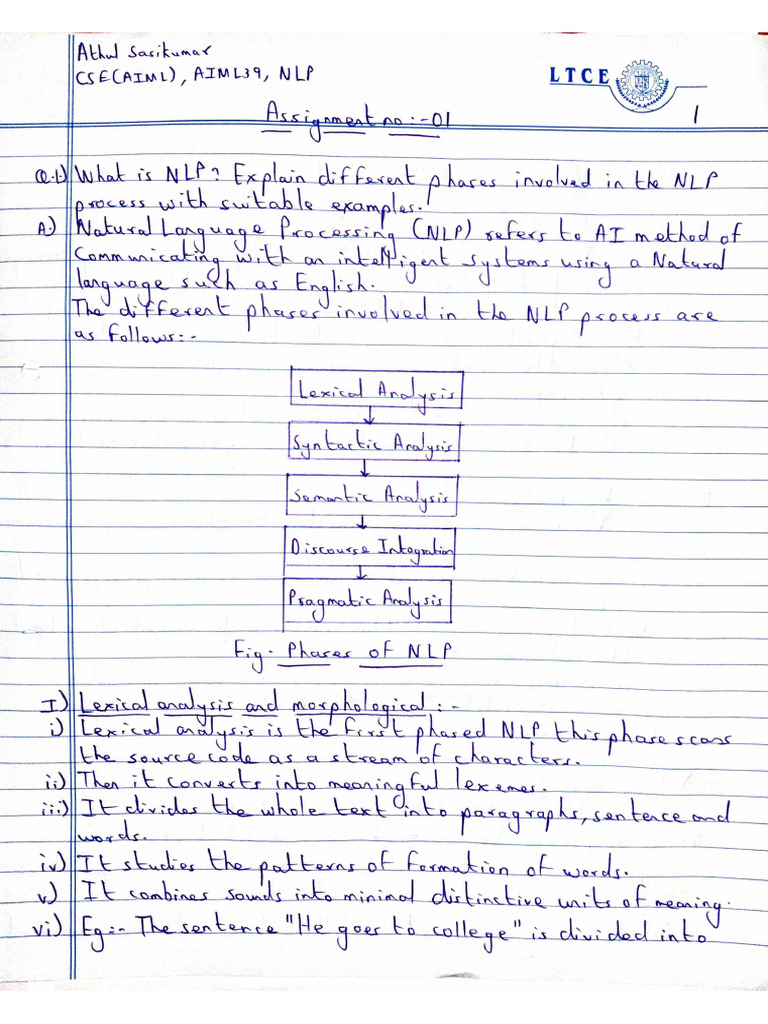 Athul Sasikumar
CSE(AIML), AIML39, NLP
LTCE
1
Assignment no :-01
Q.1) What is NLP? Explain different phases involved in the NLP
process with suitable examples.
A:) Natural Language Processing (NLP) refers to AI method of
communicating with an intelligent systems using a Natural
language such as English.
The different phases involved in the NLP process are
as follows:-
Lexical Analysis
Syntactic Analysis
Semantic Analysis
Discourse Integration
Pragmatic Analysis
Fig- Phases of NLP
I) Lexical analysis and morphological :-
i) Lexical analysis is the first phased NLP this phase scans
the source code as a stream of characters.
ii) Then it converts into meaningful lexemes.
iii) It divides the whole text into paragraphs, sentence and
words.
iv) It studies the patterns of formation of words.
v) It combines sounds into minimal distinctive units of meaning.
vi) Eg:- The sentence "He goes to college" is divided into